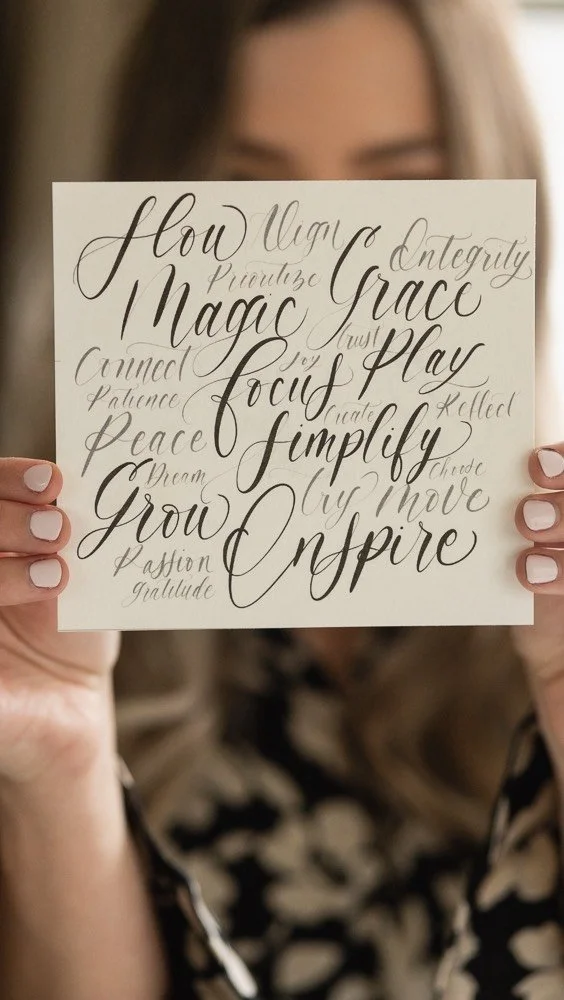 Flow Align Integrity
Prioritize
Magic Grace
Connect Joy Trust Play
Patience focus Create Reflect
Peace Simplify
Dream Choose
Grow Move
Passion Inspire
gratitude